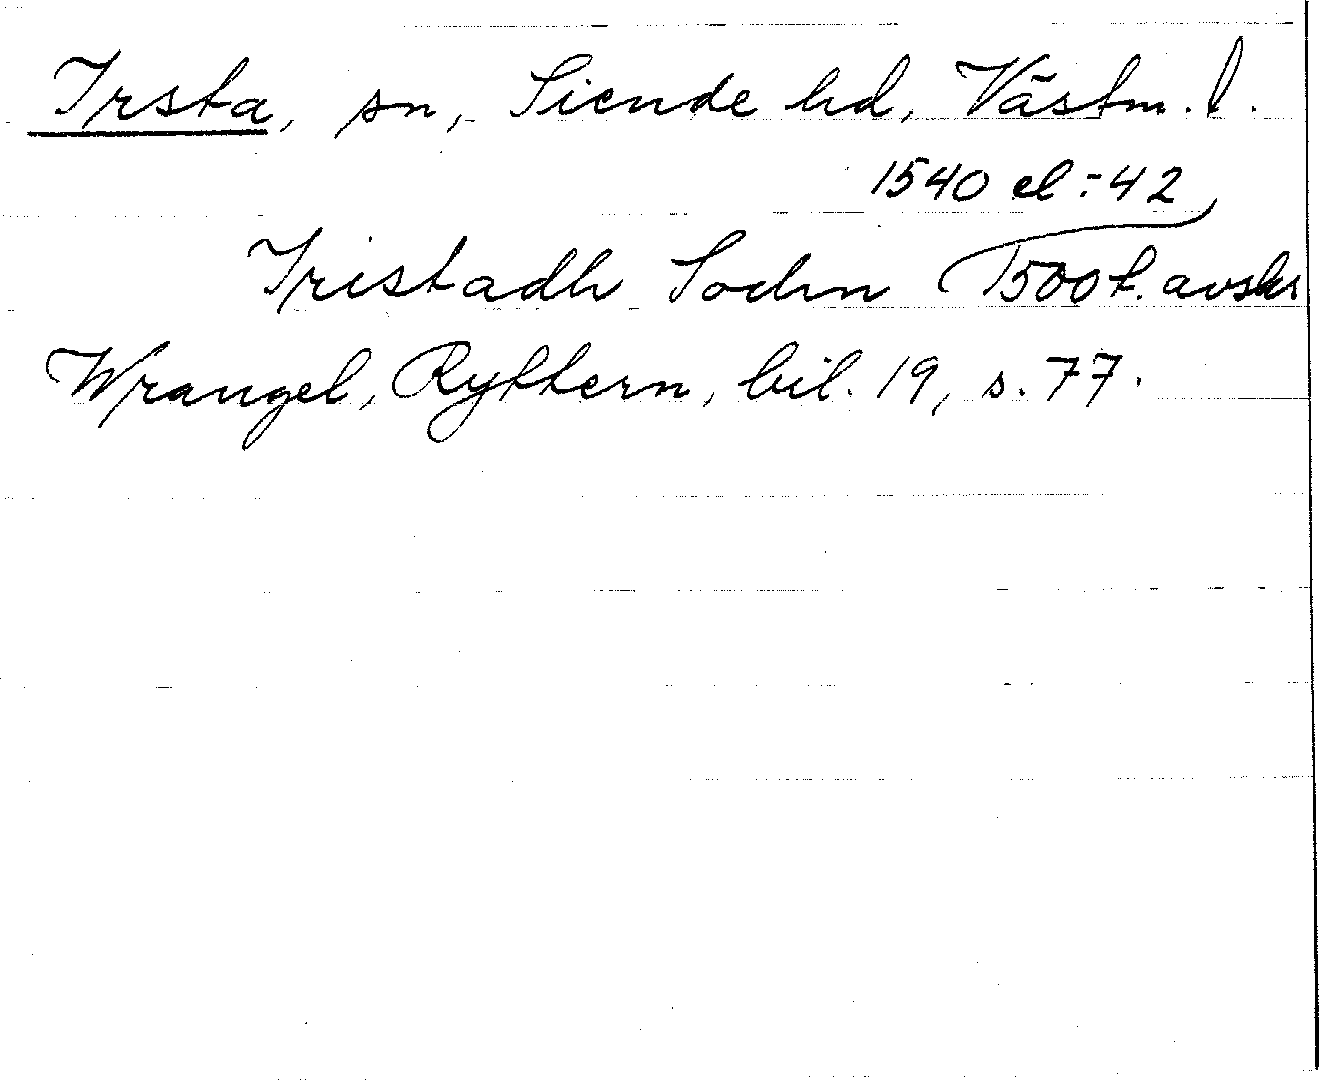 Irsta, sn, Siende hd, Västm. l.
1540 el. :42
Iristadh Sochn (1500 t. avskr
Wrangel, Ryttern, bil. 19, s. 77.